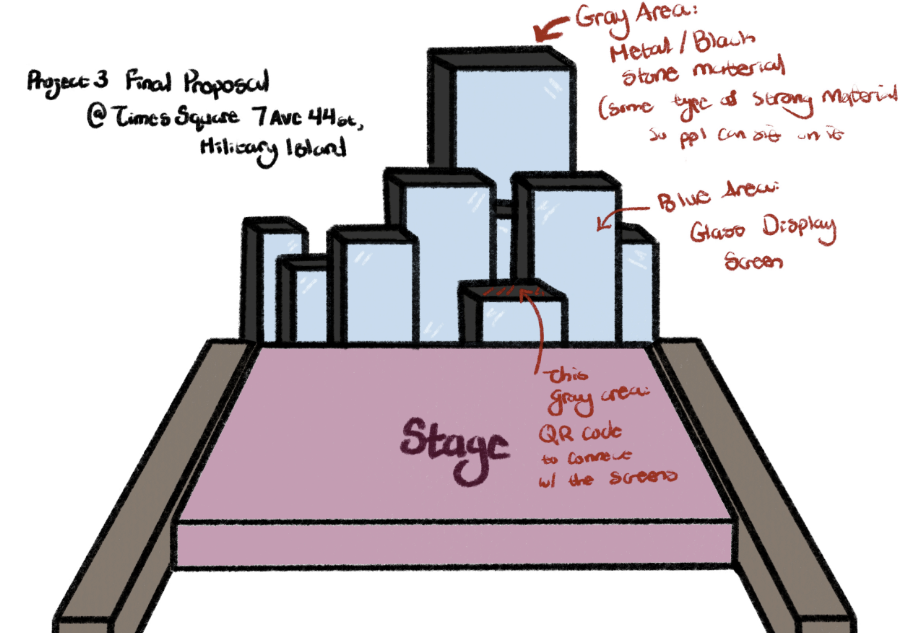 Project 3 Final Proposal
@ Times Square 7 Ave 44st,
Military Island
Gray Area:
Metal / Black
Stone material
(some type of strong material
so ppl can sit on it
Blue Area:
Glass Display
Screen
This
gray area:
QR code
to connect
w/ the screens
Stage